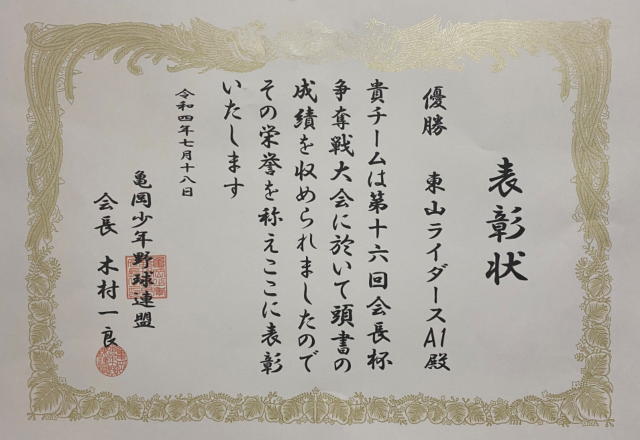 表彰状
優勝 東山ライダースA1殿
貴チームは第十六回会長杯
争奪戦大会に於いて頭書の
成績を収められましたので
その栄誉を称えここに表彰
いたします
令和四年七月十八日
亀岡少年野球連盟
会長 木村一良